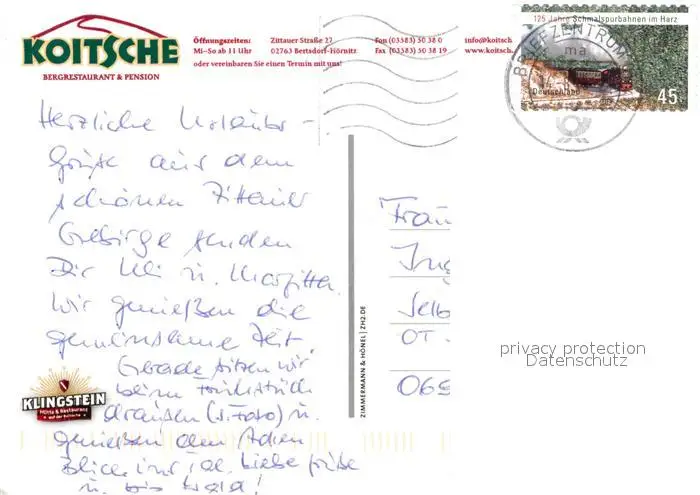 KOITSCHE
BERGRESTAURANT & PENSION
Öffnungszeiten:
Mi–So ab 11 Uhr
oder vereinbaren Sie einen Termin mit uns!
Zittauer Straße 27
02763 Bertsdorf-Hörnitz
Fon (03583) 50 38 0
Fax (03583) 50 38 19
info@koitsch
www.koitsch.
125 Jahre Schmalspurbahnen im Harz
BRIEFZENTRUM
ma
Deutschland
45
Herzliche Urlaubs-
grüße aus dem
schönen Zittauer
Gebirge senden
Dir Uli u. Margitta.
Wir genießen die
gemeinsame Zeit.
Gerade sitzen wir
beim Frühstück
draußen (s. Foto) u.
genießen den
Blick ins Tal. Liebe Grüße
u. bis bald!
KLINGSTEIN
Hütte & Restaurant
auf der Koitsche
ZIMMERMANN & HÖNEL | ZH2.DE
Frau
Selb
OT
065
privacy protection
Datenschutz